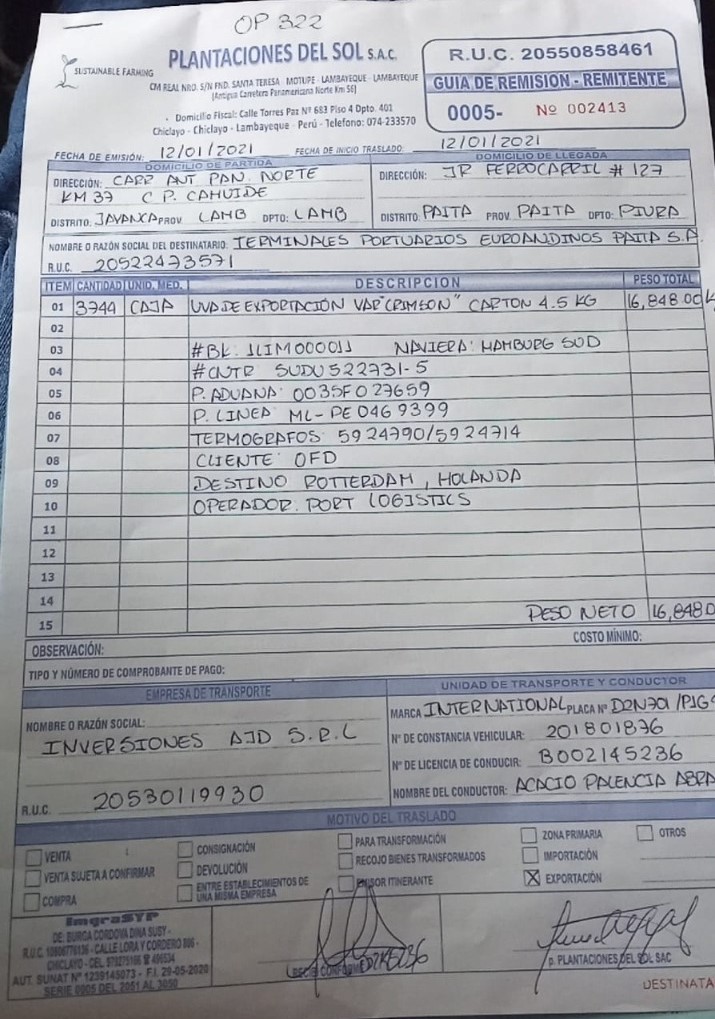 OP 322
SUSTAINABLE FARMING
PLANTACIONES DEL SOL S.A.C.
CM REAL NRO. S/N FND. SANTA TERESA - MOTUPE - LAMBAYEQUE - LAMBAYEQUE
(Antigua Carretera Panamericana Norte Km 56)
Domicilio Fiscal: Calle Torres Paz Nº 683 Piso 4 Dpto. 401
Chiclayo - Chiclayo - Lambayeque - Perú - Telefono: 074-233570
R.U.C. 20550858461
GUIA DE REMISION - REMITENTE
0005- Nº 002413
FECHA DE EMISIÓN: 12/01/2021 FECHA DE INICIO TRASLADO: 12/01/2021
DOMICILIO DE PARTIDA
DIRECCIÓN: CARR ANT PAN. NORTE
KM 37 C P. CAHUIDE
DISTRITO. JAYANCA PROV. LAMB DPTO: LAMB
DOMICILIO DE LLEGADA
DIRECCIÓN: JR FERROCARRIL # 127
DISTRITO. PAITA PROV. PAITA DPTO: PIURA
NOMBRE O RAZÓN SOCIAL DEL DESTINATARIO: TERMINALES PORTUARIOS EUROANDINOS PAITA S.A
R.U.C. 20522473571
ITEM CANTIDAD UNID. MED. DESCRIPCION PESO TOTAL
01 3744 CAJA UVA DE EXPORTACIÓN VAR "CRIMSON" CARTON 4.5 KG 16,848.00 K
02
03 #BK: 1LIM000011 NAVIERA: HAMBURG SUD
04 #CNTR SUDU 522731-5
05 P. ADUANA: 0035F027659
06 P. LINEA ML-PE 0469399
07 TERMOGRAFOS: 5924790/5924714
08 CLIENTE OFD
09 DESTINO ROTTERDAM, HOLANDA
10 OPERADOR. PORT LOGISTICS
11
12
13
14
15 PESO NETO 16,848.0
OBSERVACIÓN: COSTO MÍNIMO:
TIPO Y NÚMERO DE COMPROBANTE DE PAGO:
EMPRESA DE TRANSPORTE
NOMBRE O RAZÓN SOCIAL:
INVERSIONES AJD S.R.L
R.U.C. 20530119930
UNIDAD DE TRANSPORTE Y CONDUCTOR
MARCA INTERNATIONAL PLACA Nº D2N701 /P1G
Nº DE CONSTANCIA VEHICULAR: 201801876
Nº DE LICENCIA DE CONDUCIR: B002145236
NOMBRE DEL CONDUCTOR: ACACIO PALENCIA ABRA
MOTIVO DEL TRASLADO
VENTA CONSIGNACIÓN PARA TRANSFORMACIÓN ZONA PRIMARIA OTROS
VENTA SUJETA A CONFIRMAR DEVOLUCIÓN RECOJO BIENES TRANSFORMADOS IMPORTACIÓN
COMPRA ENTRE ESTABLECIMIENTOS DE UNA MISMA EMPRESA EMISOR ITINERANTE X EXPORTACIÓN
ImgraSYP
DE: BURGA CORDOVA DINA SUSY -
CALLE LORA Y CORDERO
CHICLAYO - CEL
AUT. SUNAT Nº 1239145073 - F.I. 29-05-2020
SERIE 0005 DEL 2051 AL 3050
RECIBI CONFORME
p. PLANTACIONES DEL SOL SAC
DESTINATA